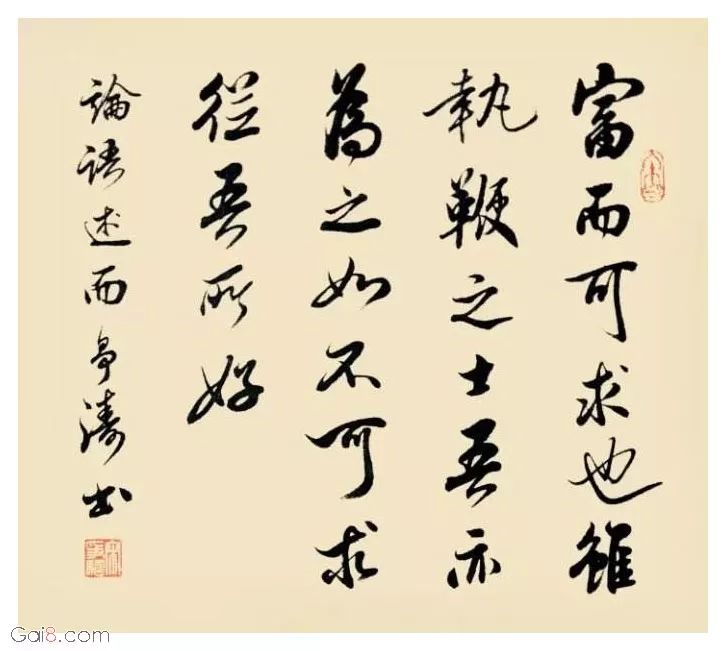 富而可求也雖
執鞭之士吾亦
為之如不可求
從吾所好
論語述而 濤書
Gai8.com